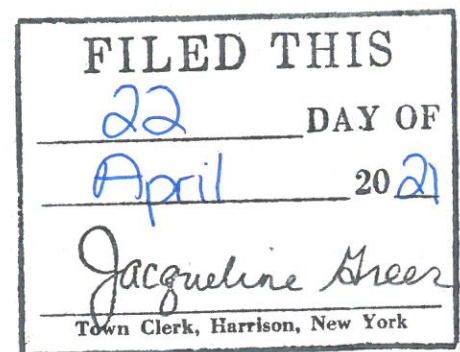 FILED THIS
22 DAY OF
April 20 21
Jacqueline Greer
Town Clerk, Harrison, New York